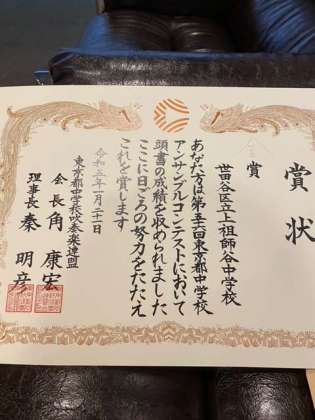 賞状
賞
世田谷区立上祖師谷中学校
あなた方は第五六回東京都中学校
アンサンブルコンテストにおいて
頭書の成績を収められました
ここに日ごろの努力をたたえ
これを賞します
令和五年一月二十一日
東京都中学校吹奏楽連盟
会長 角 康宏
理事長 秦 明彦